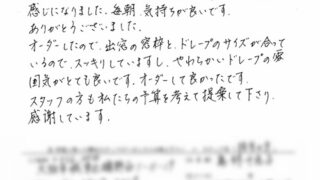 感じになりました。毎朝、気持ちが良いです。
ありがとうございました。
オーダーしたので、出窓の窓枠と、ドレープのサイズが合って
いるので、スッキリしていますし、やわらかいドレープの雰
囲気がとても良いです。オーダーして良かったです。
スタッフの方も私たちの予算を考えて提案して下さり、
感謝しています。